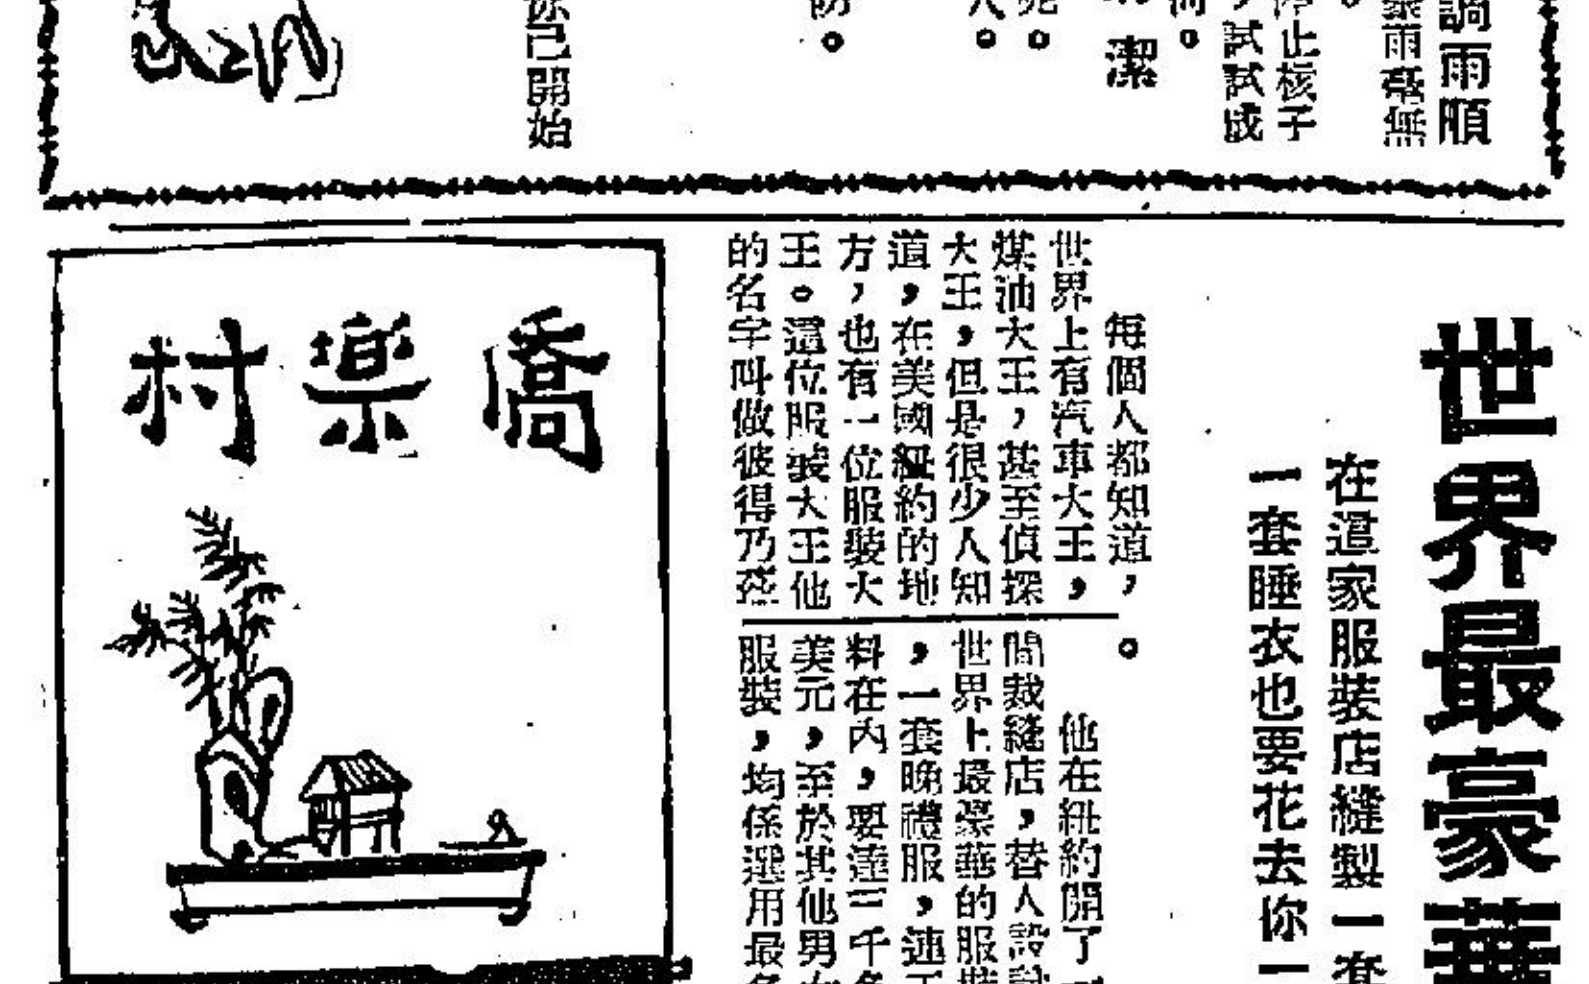 調雨順
暴雨毫無
停止核子
試試試成
潔
你已開始
世界最豪華
在這家服裝店縫製一套
一套睡衣也要花去你一
每個人都知道，
世界上有汽車大王，
煤油大王，甚至偵探
大王，但是很少人知
道，在美國紐約的地
方，也有一位服裝大
王。這位服裝大王他
的名字叫做彼得乃茲
。
他在紐約開了一
間裁縫店，替人設計
世界上最豪華的服裝
，一套晚禮服，連
料在內，要達三千
美元，至於其他男
服裝，均係選用最
僑樂村